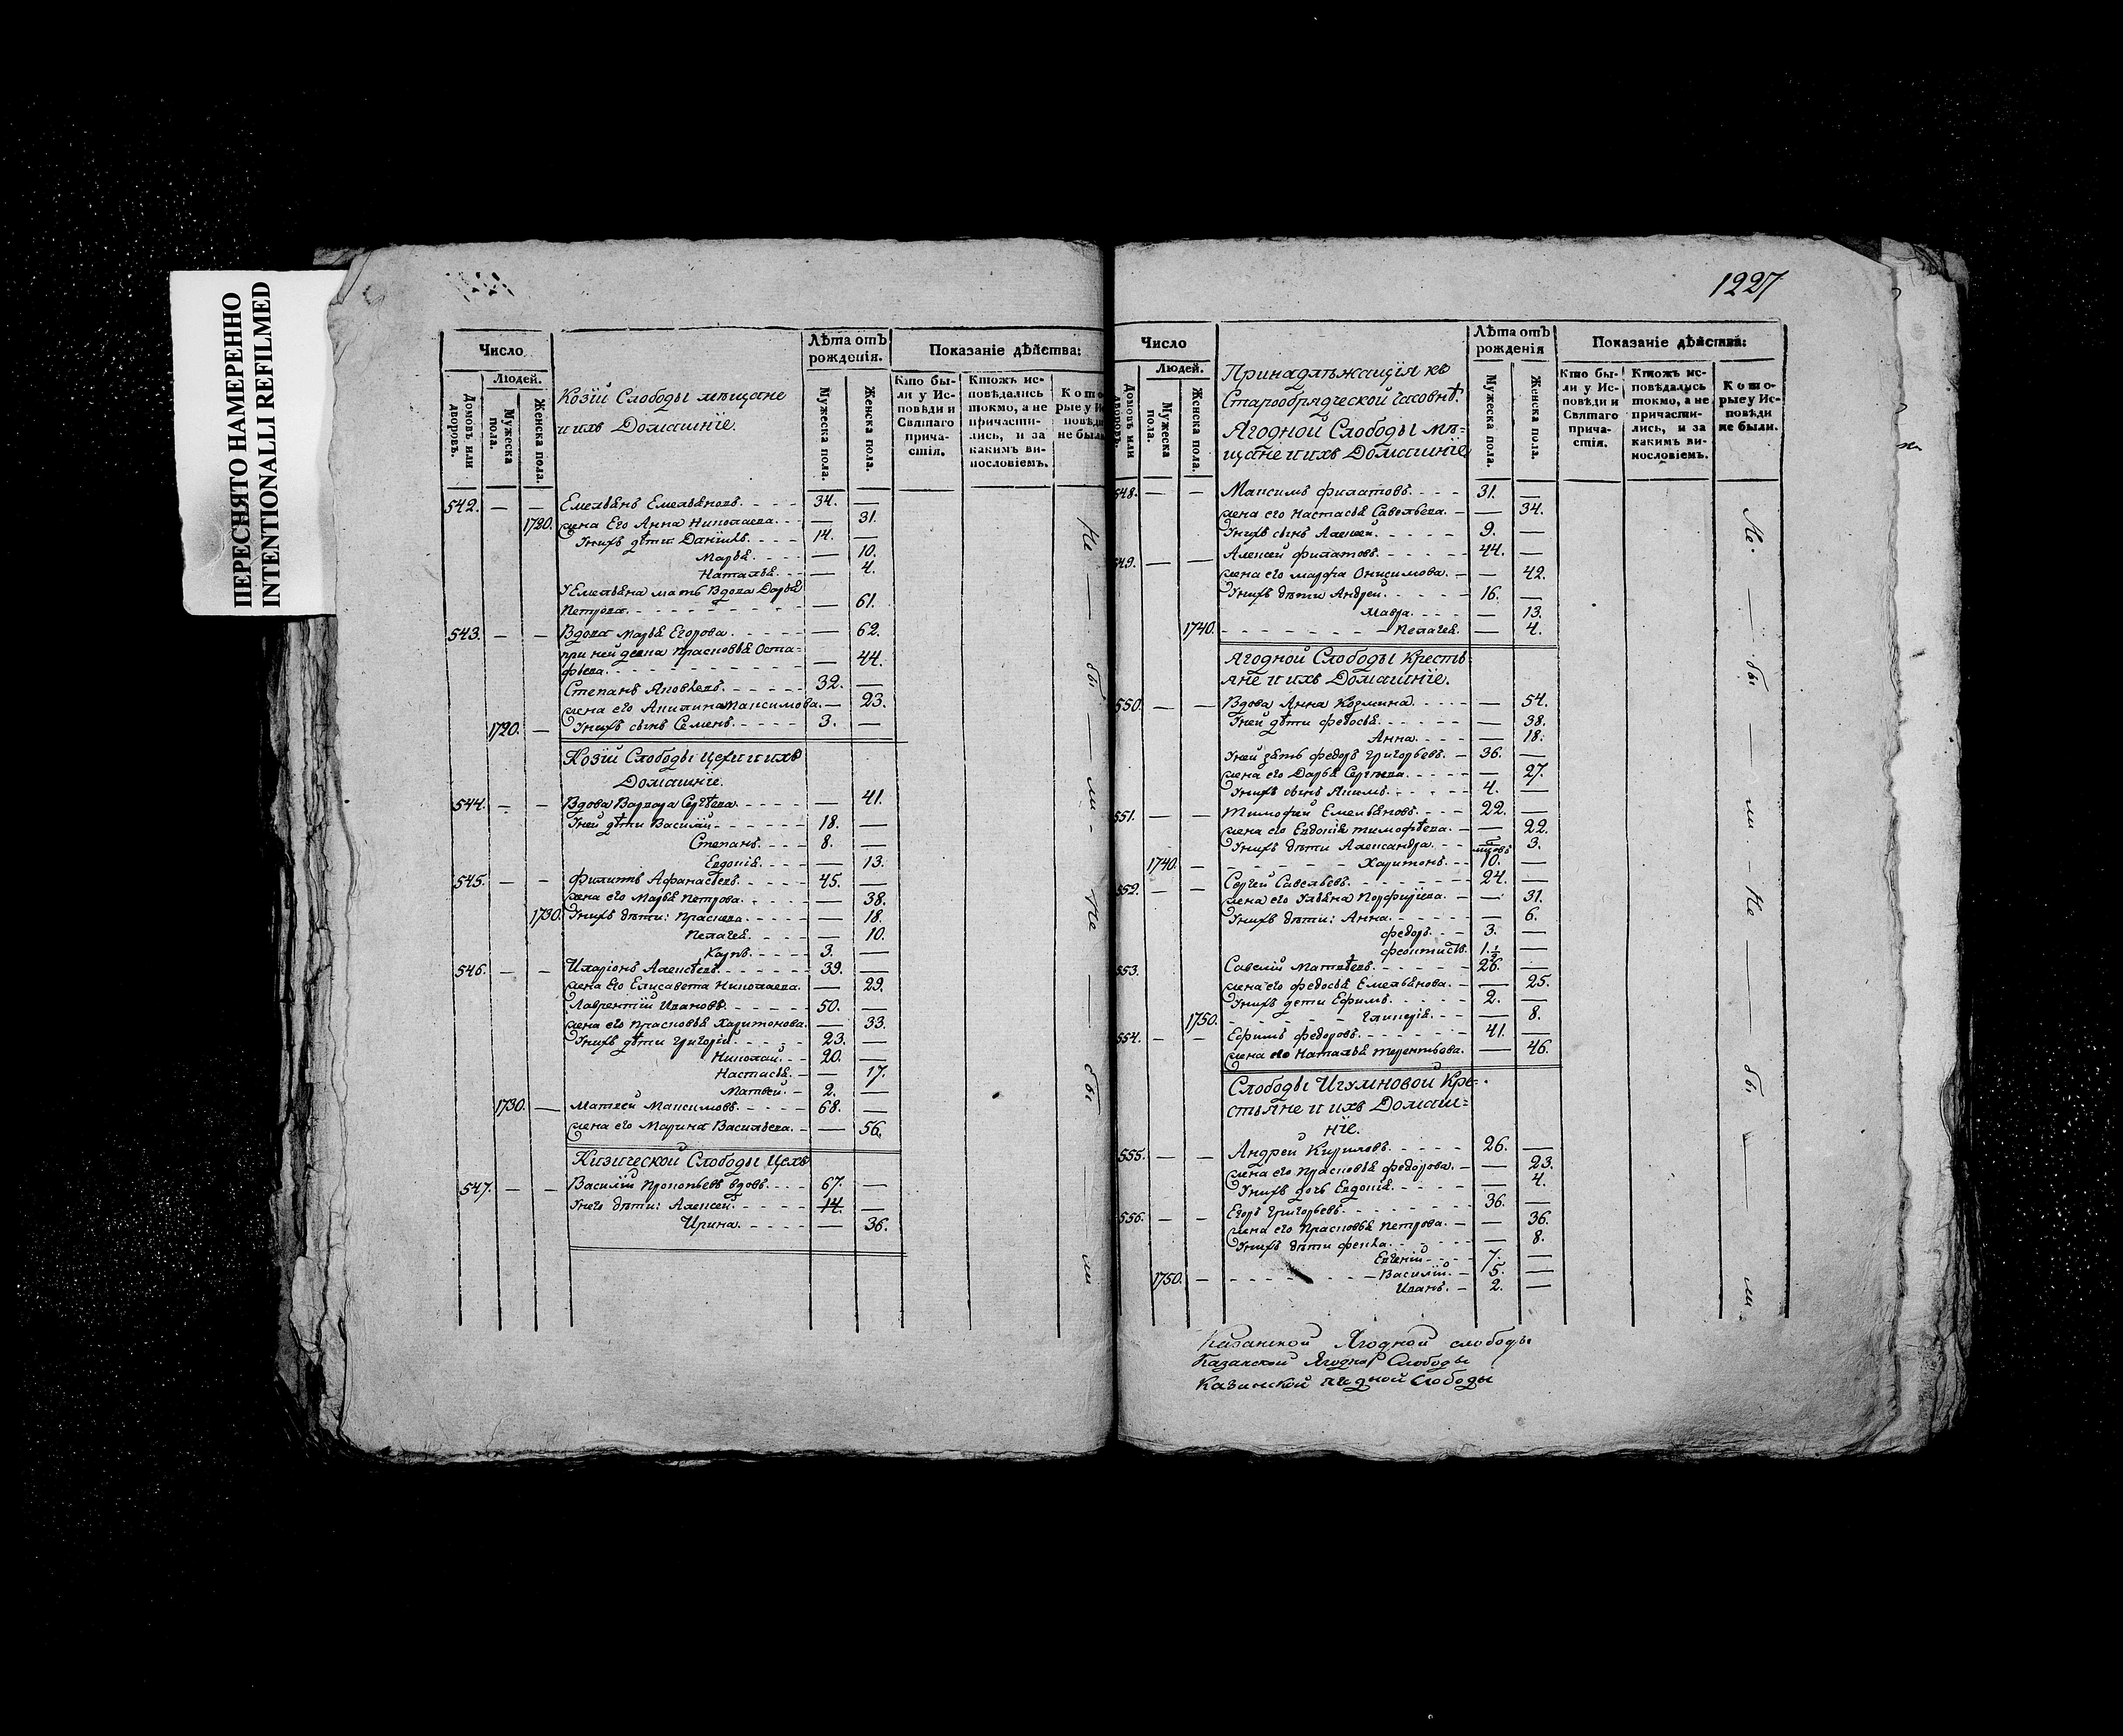 ПЕРЕСНЯТО НАМЕРЕННО
INTENTIONALLI REFILMED
Число
Людей.
Домовъ или дворовъ.
Мужеска пола.
Женска пола.
Козій Слободы мещане
и ихъ Домашніе.
Лѣта отъ рожденія.
Мужеска пола.
Женска пола.
Показаніе дѣйства:
Кто бы-
ли у Ис-
повѣди и
Святаго
прича-
стія.
Ктожъ ис-
повѣдались
токмо, а не
причасти-
лись, и за
какимъ ви-
нословіемъ.
Кото
рые у Ис
повѣди
не были
542. — — Емельянъ Емельяновъ. 34. —
1720. жена Его Анна Николаева. — 31.
У нихъ дѣти Даніилъ. 14. —
Марья. — 10.
Наталья. — 4.
У Емельяна мать Вдова Дарья
Петрова. — 61.
543. — — Вдова Марья Егорова. — 62.
при ней девка Прасковья Оста=
фьева. — 44.
Степанъ Яковлевъ. 32. —
жена его Акилина Максимова. — 23.
1720. — У нихъ сынъ Семенъ. 3. —
Козій Слободы Цехи и ихъ
Домашніе.
544. — — Вдова Варвара Сергѣева. — 41.
У ней дѣти Василій. 18. —
Степанъ. 8. —
Евдокія. — 13.
545. — — Филиппъ Афанасьевъ. 45. —
жена его Марья Петрова. — 38.
1730. У нихъ дѣти: Праскева. — 18.
Пелагея. — 10.
Карпъ. 3. —
546. — — Иларіонъ Алексѣевъ. 39. —
жена Его Елисавета Николаева. — 29.
Лаврентій Ивановъ. 50. —
жена его Прасковья Харитонова. — 33.
У нихъ дѣти Григорій. 23. —
Николай. 20. —
Настасья. — 17.
Матвей. 2. —
1730. — Матвей Максимовъ. 68. —
жена его Марина Васильева. — 56.
Кизической Слободы Цехъ
547. — — Василій Прокопьевъ вдовъ. 67. —
У него дѣти: Алексей. 14. —
Ирина. — 36.
Не — бы — ли - Не — бы ли
1227
Число
Людей.
Домовъ или дворовъ.
Мужеска пола.
Женска пола.
Принадлѣжащія къ
Старообрядческой часовнѣ.
Ягодной Слободы мѣ=
щане и ихъ Домашніе
Лѣта отъ рожденія
Мужеска пола.
Женска пола.
Показаніе дѣйства:
Кто бы-
ли у Ис-
повѣди и
Святаго
прича-
стія.
Ктожъ ис-
повѣдались
токмо, а не
причасти-
лись, и за
какимъ ви-
нословіемъ.
Кото-
рые у Ис-
повѣди
не были.
548. — — Максимъ Филатовъ. 31. —
жена его Настасья Савельева. — 34.
У нихъ сынъ Алексей. 9. —
549. — — Алексей Филатовъ. 44. —
жена его Марфа Онисимова. — 42.
У нихъ дѣти Андрей. 16. —
Мавра. — 13.
1740. Пелагея. — 4.
Ягодной Слободы Кресть=
яне и ихъ Домашніе.
550. — — Вдова Анна Козмина. — 54.
У ней дѣти Федосья. — 38.
Анна. — 18.
У ней зять Федоръ Григорьевъ. 36. —
жена его Дарья Сергѣева. — 27.
У нихъ сынъ Акимъ. 4. —
551. — — Тимофей Емельяновъ. 22. —
жена его Евдокія Тимофѣева. — 22.
У нихъ дѣти Александра. — 3.
1740. — Харитонъ. 10. —
552. — — Сергей Савельевъ. 24. —
жена его Ульяна Порфирьева. — 31.
У нихъ дѣти: Анна. — 6.
Федоръ. 3. —
Феоктистъ. 1.½ —
553. Савелій Матвѣевъ. 26. —
жена его Федосья Емельянова. — 25.
У нихъ дети Ефимъ. 2. —
1750. Гликерія. — 8.
554. — — Ефимъ Федоровъ. 41. —
жена его Наталья Терентьева. — 46.
Слободы Игумновой Кре-
стьяне и ихъ Домаш=
ніе.
555. — — Андрей Кириловъ. 26. —
жена его Прасковья Федорова. — 23.
У нихъ дочь Евдокія. — 4.
556. — — Егоръ Григорьевъ. 36. —
жена его Прасковья Петрова. — 36.
У нихъ дѣти Фекла. — 8.
Евгеній. 7. —
1750. — Василій. 5. —
Иванъ. 2. —
Не. — бы — ли. - Не — бы — ли
Казанской Ягодной слободы
Казанской Ягодной Слободы
Казанской Слободы